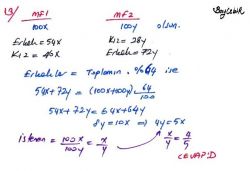 13) MF1 MF2
100x 100y olsun.
Erkek = 54x Kız = 28y
Kız = 46x Erkek = 72y
Erkekler = Toplamın %64 ise
54x + 72y = (100x+100y) 64/100
54x + 72y = 64x + 64y
8y = 10x ⇒ 4y = 5x
istenen = 100x/100y = x/y x/y = 4/5
CEVAP D